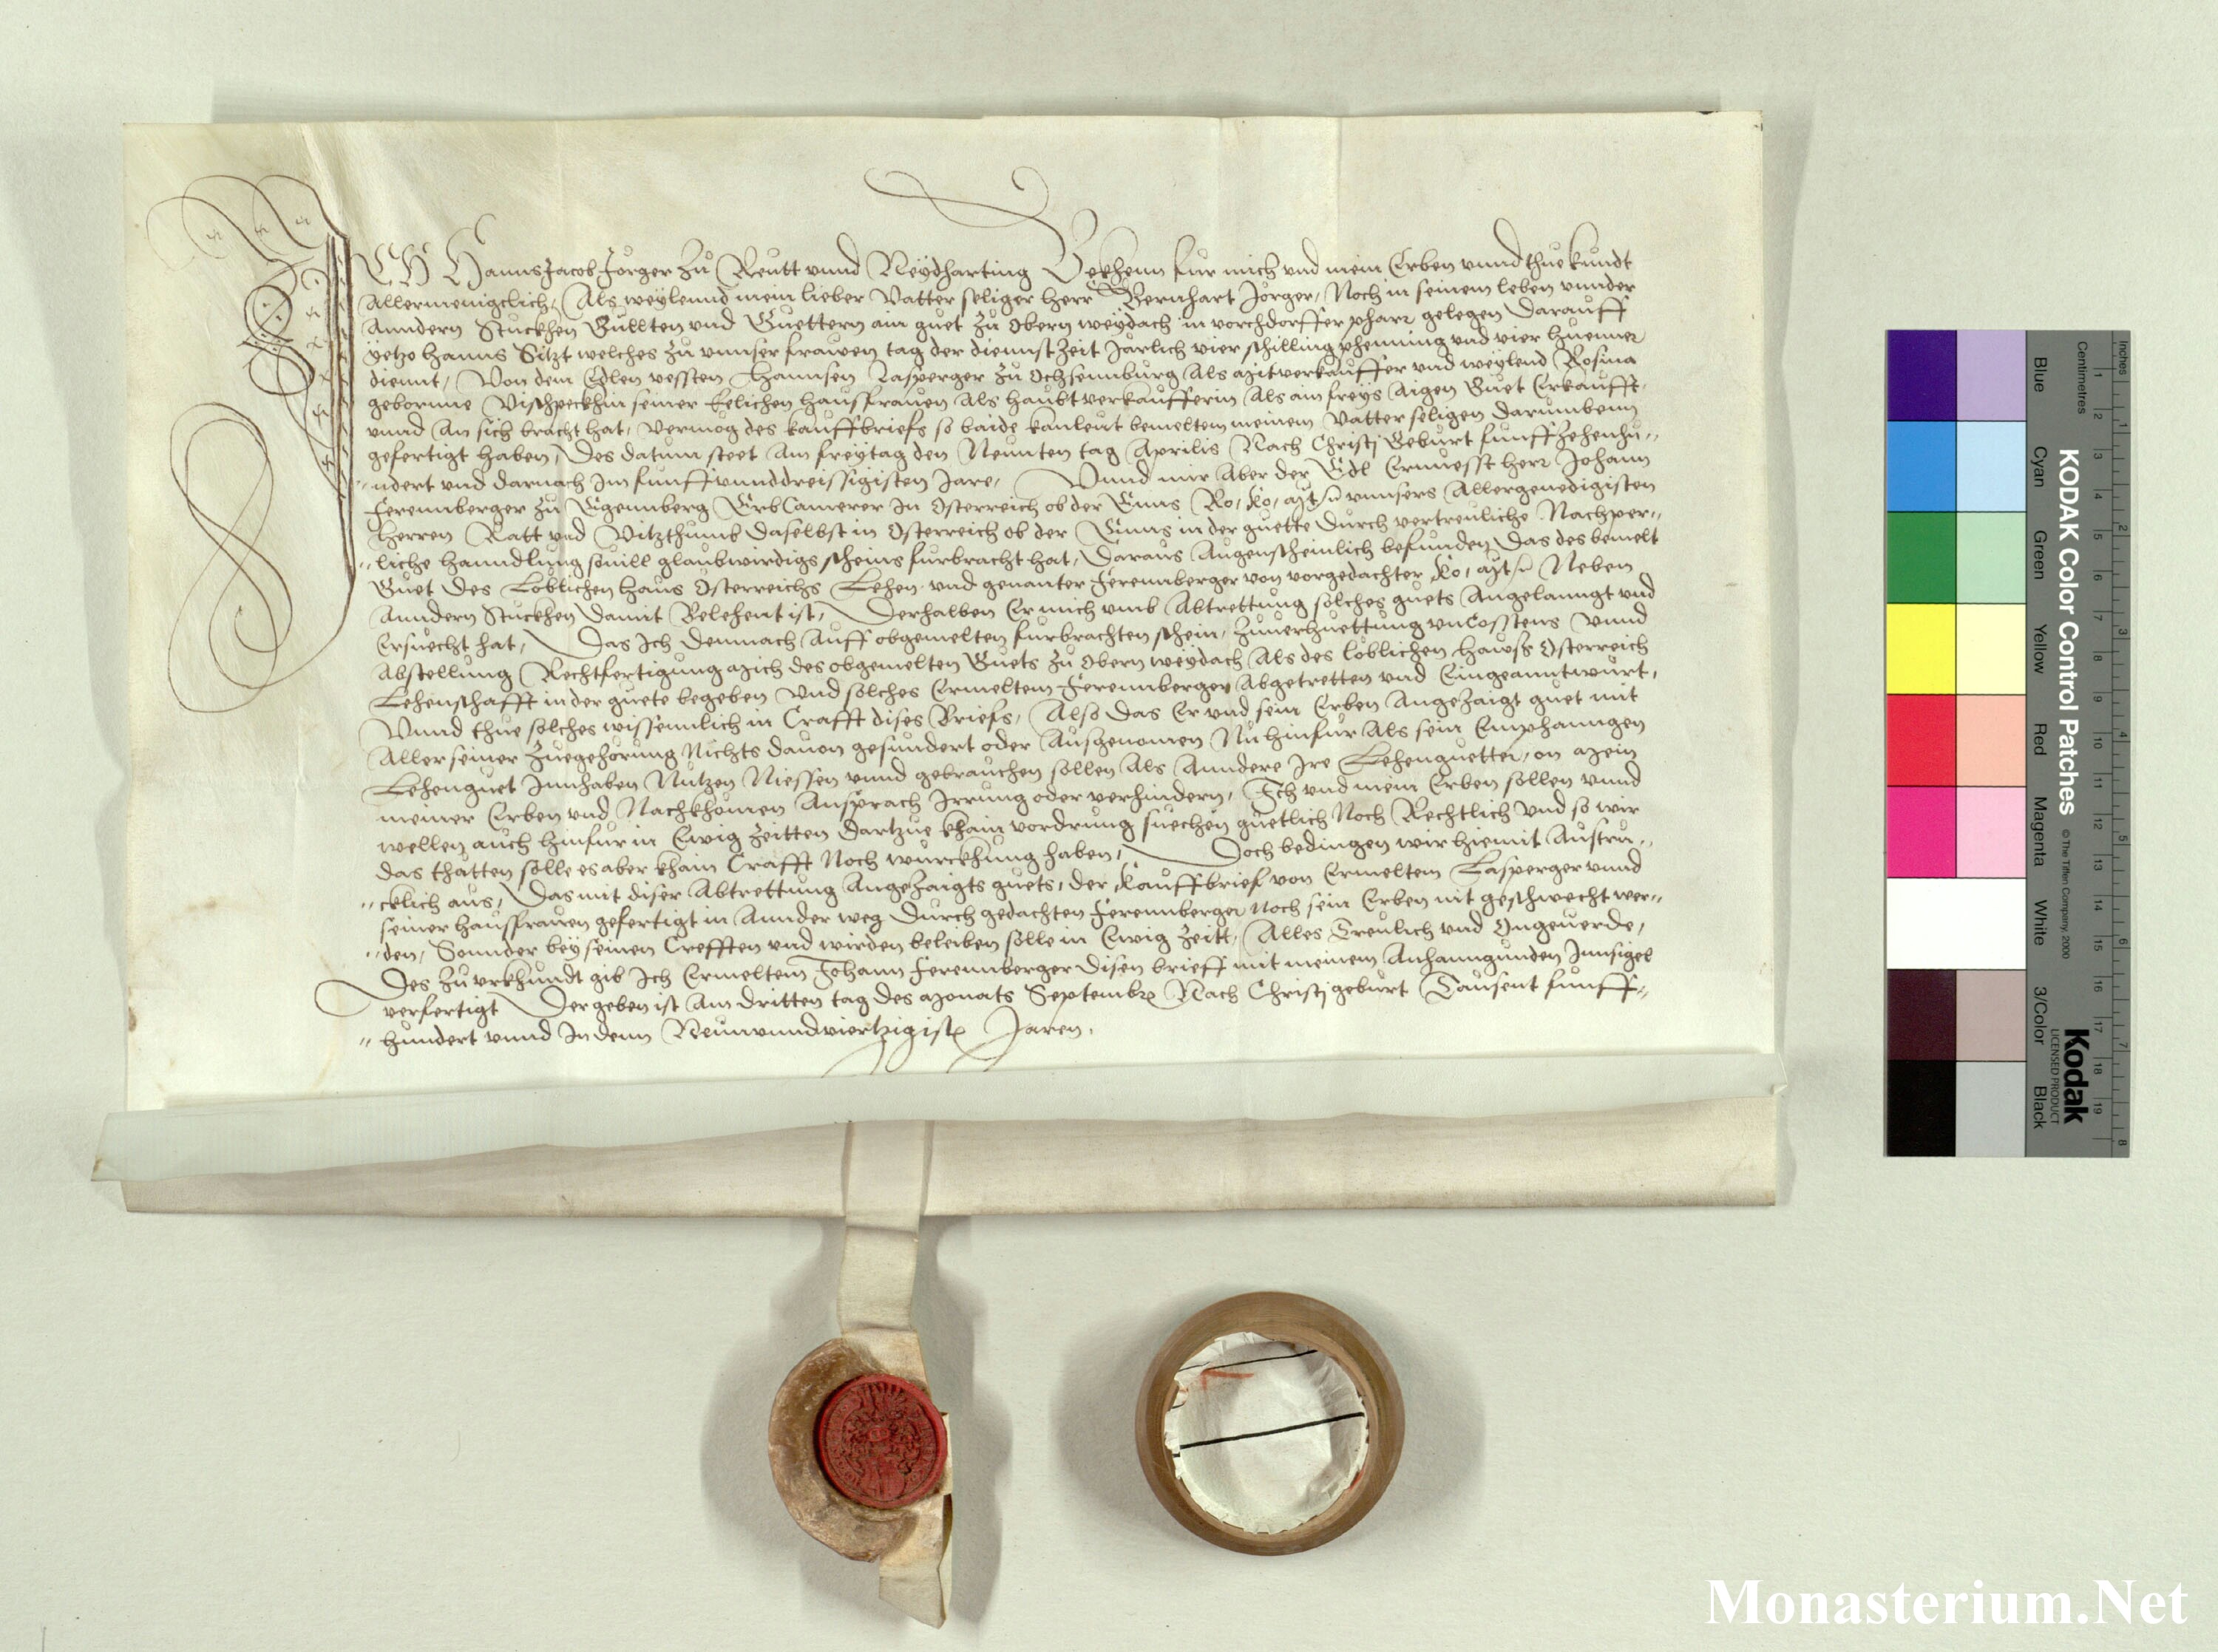 ICH Hanns Jacob Jörger zu Reutt vnnd Neydharting Bekhenn fur mich vnd mein Erben vnnd thue kundt
Allermenigclich, Als weylennd mein lieber Vatter seliger Herr Bernhart Jörger, Noch in seinem leben vnnder
Anndern Stuckhen Gullten vnd Guettern ain guet zu Obern weydach in vorchdorffer pharr gelegen Darauff
yetzo Hanns Sitzt welches zu vnnser frawen tag der diennst zeit Jarlich vier schilling phenning vnd vier huenner
diennt, Von dem Edlen vessten Hannsen Lasperger zu Ochsennburg Als Mitverkauffer vnd weylend Rosina
gebornne Vischpeckhin seiner Eelichen Hausfrawen Als haubtverkaufferin Als ain freys Aigen Guet Erkaufft,
vnnd An sich bracht hat, vermog des kauffbriefs so baide kanleut bemeltem meinem Vatter seligen darumbenn
gefertigt haben, Des datum steet Am freytag den Neunten tag Aprilis Nach Christj Geburt funffzehenhu-
ndert vnd darnach Im funffvnnddreissigisten Jare, Vnnd mir Aber der Edl Ernvesst herr Johann
Ferennberger zu Egennberg ErbCamerer In Osterreich ob der Enns Ro, Ko, Mt vnnsers Allergenedigisten
Herren Ratt vnd Vitzthumb daselbst in Osterreich ob der Enns in der guette durch vertreuliche Nachper-
liche hanndlung souill glaubwirdigs scheins furbracht hat, Daraus Augenscheinlich befunden, Das des bemelt
Guet des Loblichen Haus Osterreichs Lehen vnd genanter Ferennberger von vorgedachter Ko, Mt Neben
Anndern Stuckhen Damit Belehent ist, Derhalben Er mich vmb Abtrettung solches guets Angelanngt vnd
Ersuecht hat, Das Ich demnach Auff obgemelten furbrachten schein, zuuerhuettung vncosstens vnnd
Abstellung Rechtfertigung Mich des obgemelten Guets zu Obern weydach Als des loblichen Hawss Osterreich
Lehenschafft in der guete begeben vnd solches Ermeltem Ferennberger Abgetretten vnd Eingeanntwurt,
Vnnd thue solches wissenntlich in Crafft dises Briefs, Also das Er vnd sein Erben Angezaigt guet mit
Aller seiner Zuegehorung Nichts dauon gesundert oder Ausgenomen Nu hinfur Als sein Emphanngen
Lehenguet Innhaben Nutzen Niessen vnnd gebrauchen sollen Als Anndere Ire Lehenguetter, on Mein
meiner Erben vnd Nachkhomen Ansprach Irrung oder verhindern, Ich vnd mein Erben sollen vnnd
wellen auch hinfur in Ewig zeitten dartzue khain vordrung suechen guetlich Noch Rechtlich vnd so wir
das thatten solle es aber khain Crafft Noch wurckhung haben, Doch bedingen wir hiemit Austru-
cklich aus, Das mit diser Abtrettung Angezaigts guets, der Kauffbrief von Ermeltem Lasperger vnnd
seiner hausfrawen gefertigt in Annder weg durch gedachten Ferennberger Noch sein Erben nit geschwecht wer-
den, Sonnder bey seinen Crefften vnd wirden beleiben solle in Ewig zeitt, Alles Treulich vnd Ongeuerde,
Des zu vrkhundt gib Ich Ermeltem Johann Ferennberger disen brieff mit meinem Anhanngunden Innsigel
verfertigt Der geben ist Am dritten tag des Monats Septembr Nach Christj geburt Tausent funff-
hundert vnnd In denn Neunvnndviertzigist Jaren.
KODAK Color Control Patches
© The Tiffen Company, 2000
Kodak
LICENSED PRODUCT
Inches
Centimetres
Blue Cyan Green Yellow Red Magenta White 3/Color Black
1 2 3 4 5 6 7 8
1 2 3 4 5 6 7 8 9 10 11 12 13 14 15 16 17 18 19
Monasterium.Net